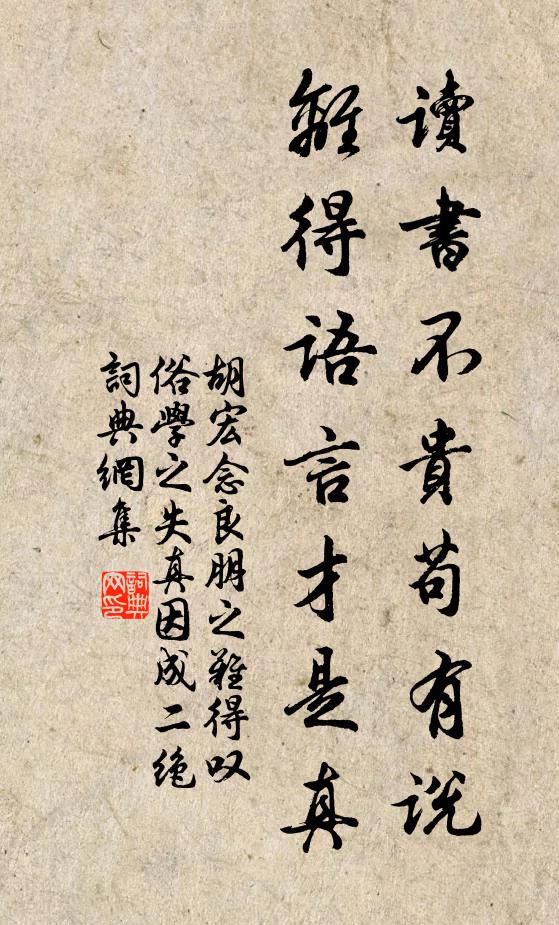 讀書不貴苟有說
離得語言才是真
胡宏念良朋之難得叹
俗學之失真因成二絶
詞典網集
詞典网印